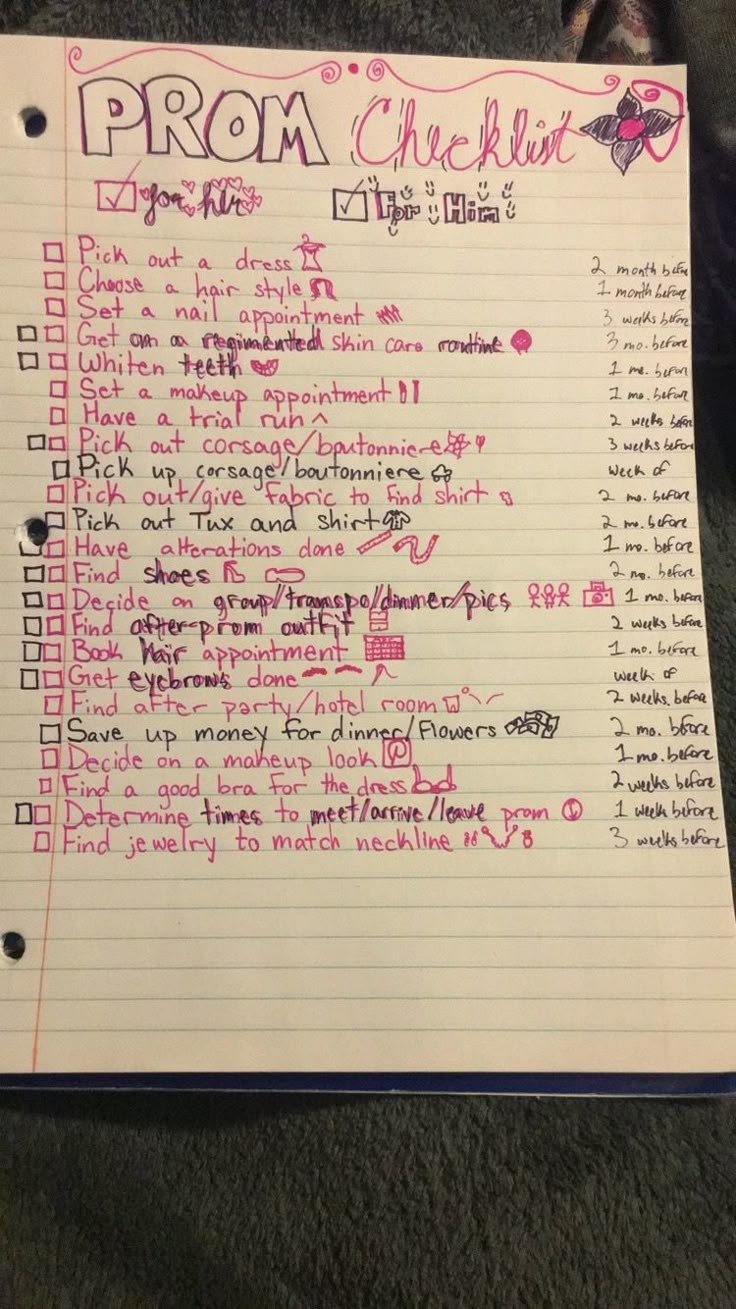 PROM Checklist
for her For Him
Pick out a dress 2 month before
Choose a hair style 1 month before
Set a nail appointment 3 weeks before
Get on a regimented skin care routine 3 mo. before
Whiten teeth 1 mo. before
Set a makeup appointment 1 mo. before
Have a trial run 2 weeks before
Pick out corsage/boutonniere 3 weeks before
Pick up corsage/boutonniere week of
Pick out/give fabric to find shirt 2 mo. before
Pick out Tux and shirt 2 mo. before
Have alterations done 1 mo. before
Find shoes 2 mo. before
Decide on group/transpo/dinner/pics 1 mo. before
Find after-prom outfit 2 weeks before
Book Hair appointment 1 mo. before
Get eyebrows done week of
Find after party/hotel room 2 weeks. before
Save up money for dinner/Flowers 2 mo. before
Decide on a makeup look 1 mo. before
Find a good bra for the dress 2 weeks before
Determine times to meet/arrive/leave prom 1 week before
Find jewelry to match neckline 3 weeks before